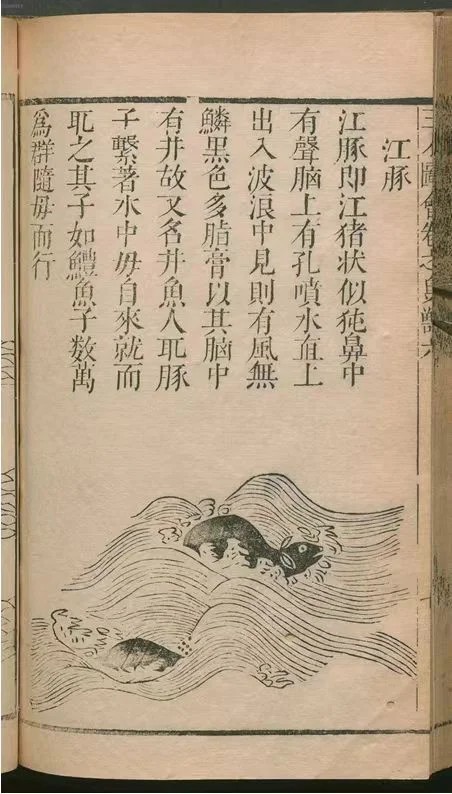 三才圖會卷之鳥獸六
江豚
江豚即江猪状似㹠鼻中
有聲脑上有孔噴水直上
出入波浪中見則有風無
鱗黑色多脂膏以其脑中
有井故又名井魚人取豚
子繫著水中母自來就而
取之其子如鱧魚子数萬
爲群隨母而行